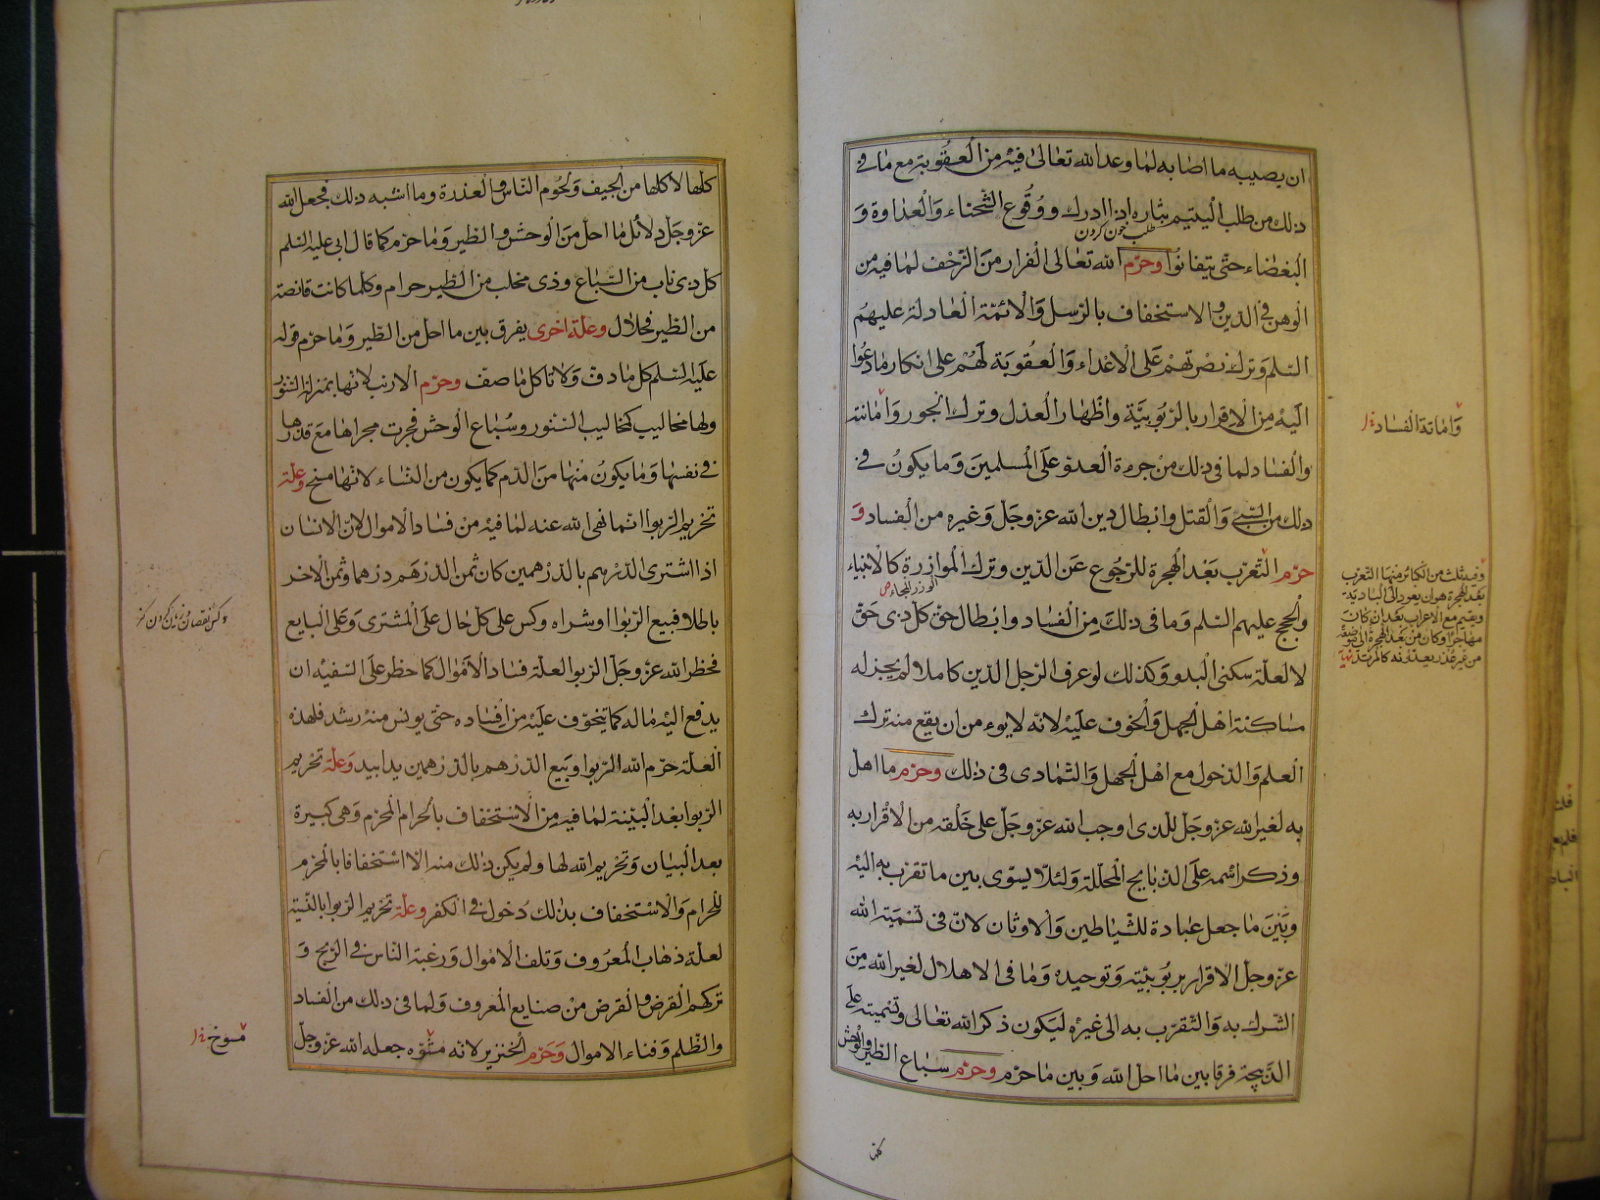 ان يصيبه ما اصابه لما وعد الله تعالى فيه من العقوبة مع ما في
ذلك من طلب اليتيم بثاره اذا ادرك و وقوع الشحناء والعداوة و
طلب خون كردن
البغضاء حتى يتفانوا وحرّم الله تعالى الفرار من الزحف لما فيه من
الوهن في الدين والاستخفاف بالرسل والائمة العادلة عليهم
السلم وترك نصرتهم على الاعداء والعقوبة لهم على انكار ما دعوا
اليه من الاقرار بالربوبية واظهار العدل وترك الجور وامانته
والفساد لما في ذلك من جرءة العدو على المسلمين وما يكون في
ذلك من السبي والقتل وابطال دين الله عز وجل وغيره من الفساد و
حرّم التعرب بعد الهجرة للرجوع عن الدين وترك الموازرة كالانبياء
والحجج عليهم السلم وما في ذلك من الفساد وابطال حق كل ذي حق
لا لعلة سكنى البدو وكذلك لو عرف الرجل الدين كاملا لم يجز له
مساكنة اهل الجهل والخوف عليه لانه لا يوءمن ان يقع منه ترك
العلم والدخول مع اهل الجهل والتمادي في ذلك وحرّم ما اهل
به لغير الله عز وجل للذي اوجب الله عز وجل على خلقه من الاقرار به
وذكر اسمه على الذبايح المحللة ولئلا يسوى بين ما تقرب به اليه
وبين ما جعل عبادة للشياطين والاوثان لان في تسمية الله
عز وجل الاقرار بربوبيته وتوحيده وما في الاهلال لغير الله من
الشرك به والتقرب به الى غيره ليكون ذكر الله تعالى وتسميته على
الذبيحة فرقا بين ما احل الله وبين ما حرم وحرّم سباع الطير والوحش
كلها
واماتة الفساد
وفيه ثلث من الكبائر منها التعرب
بعد الهجرة هو ان يعود الى البادية
ويقيم مع الاعراب بعد ان كان
مهاجرا وكان من بعد الهجرة الى موضعه
من غير عذر يعدونه كالمرتد نهاية
كلها لاكلها من الجيف ولحوم الناس والعذرة وما اشبه ذلك فجعل الله
عز وجل دلائل ما احل من الوحش والطير وما حرم كما قال ابي عليه السلم
كل ذي ناب من السباع وذي مخلب من الطير حرام وكلما كانت قانصة
من الطير فحلال وعلة اخرى يفرق بين ما احل من الطير وما حرم قوله
عليه السلم كل ما دف ولا تاكل ما صف وحرّم الارنب لانها بمنزلة السنور
ولها مخاليب كمخاليب السنور وسباع الوحش فجرت مجراها مع قذرها
في نفسها وما يكون منها من الدم كما يكون من النساء لانها مسخ وعلة
تحريم الربوا انما نهى الله عنه لما فيه من فساد الاموال لان الانسان
اذا اشترى الدرهم بالدرهمين كان ثمن الدرهم درهما وثمن الاخر
باطلا فبيع الربوا وشراه وكس على كل حال على المشترى وعلى البايع
فحظر الله عز وجل الربوا لعلة فساد الاموال كما حظر على السفيه ان
يدفع اليه ماله كما تتخوف عليه من افساده حتى يونس منه رشد فلهذه
العلة حرّم الله الربوا وبيع الدرهم بالدرهمين يدا بيد وعلة تحريم
الربوا بعد البينة لما فيه من الاستخفاف بالحرام المحرم وهي كبيرة
بعد البيان وتحريم الله لها ولم يكن ذلك منه الا استخفافا بالمحرم
للحرام والاستخفاف بذلك دخول في الكفر وعلة تحريم الربوا بالنسية
لعلة ذهاب المعروف وتلف الاموال ورغبة الناس في الربح و
تركهم القرض والقرض من صنايع المعروف ولما في ذلك من الفساد
والظلم وفناء الاموال وحرّم الخنزير لانه مشوه جعله الله عز وجل
ممسوخ